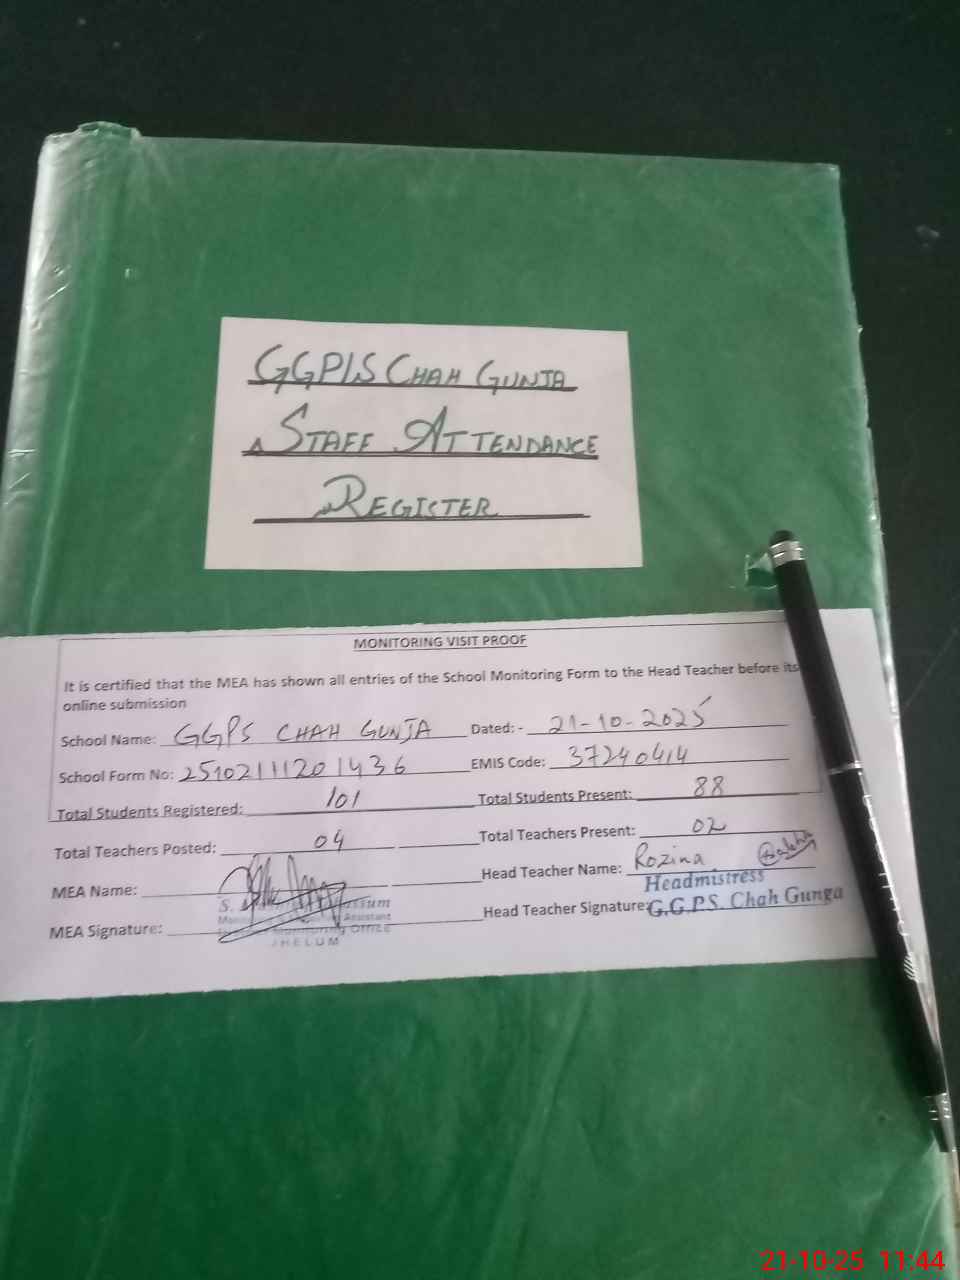 GGP/S CHAH GUNJA
STAFF ATTENDANCE
REGISTER
MONITORING VISIT PROOF
It is certified that the MEA has shown all entries of the School Monitoring Form to the Head Teacher before its
online submission
School Name: GGPS CHAH GUNJA Dated: - 21-10-2025
School Form No: 2510211120 1436 EMIS Code: 37240414
Total Students Registered: 101 Total Students Present: 88
Total Teachers Posted: 04 Total Teachers Present: 02
MEA Name: Head Teacher Name: Rozina
S. Assistant
Office
JHELUM
MEA Signature: Head Teacher Signature:
Headmistress
G.G.P.S. Chah Gunga
21-10-25 11:44